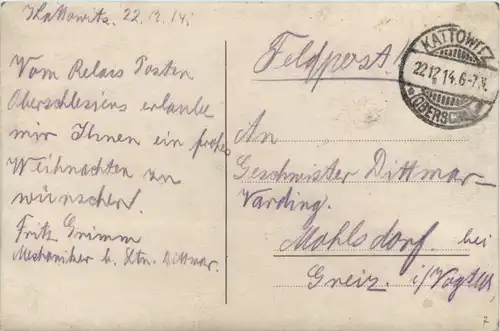 Kattowitz. 22.12.14.
Vom Relais Posten
Oberschlesiens erlaube
mir Ihnen ein frohes
Weihnachten zu
wünschen!
Fritz Grimm
Mechaniker b. Ltn. Dittmar.
Feldpost.
KATTOWITZ
22.12.14.6-7N.
(OBERSCHL.)
An
Geschwister Dittmar-
Varding.
Mohlsdorf bei
Greiz. i/Vogtld.